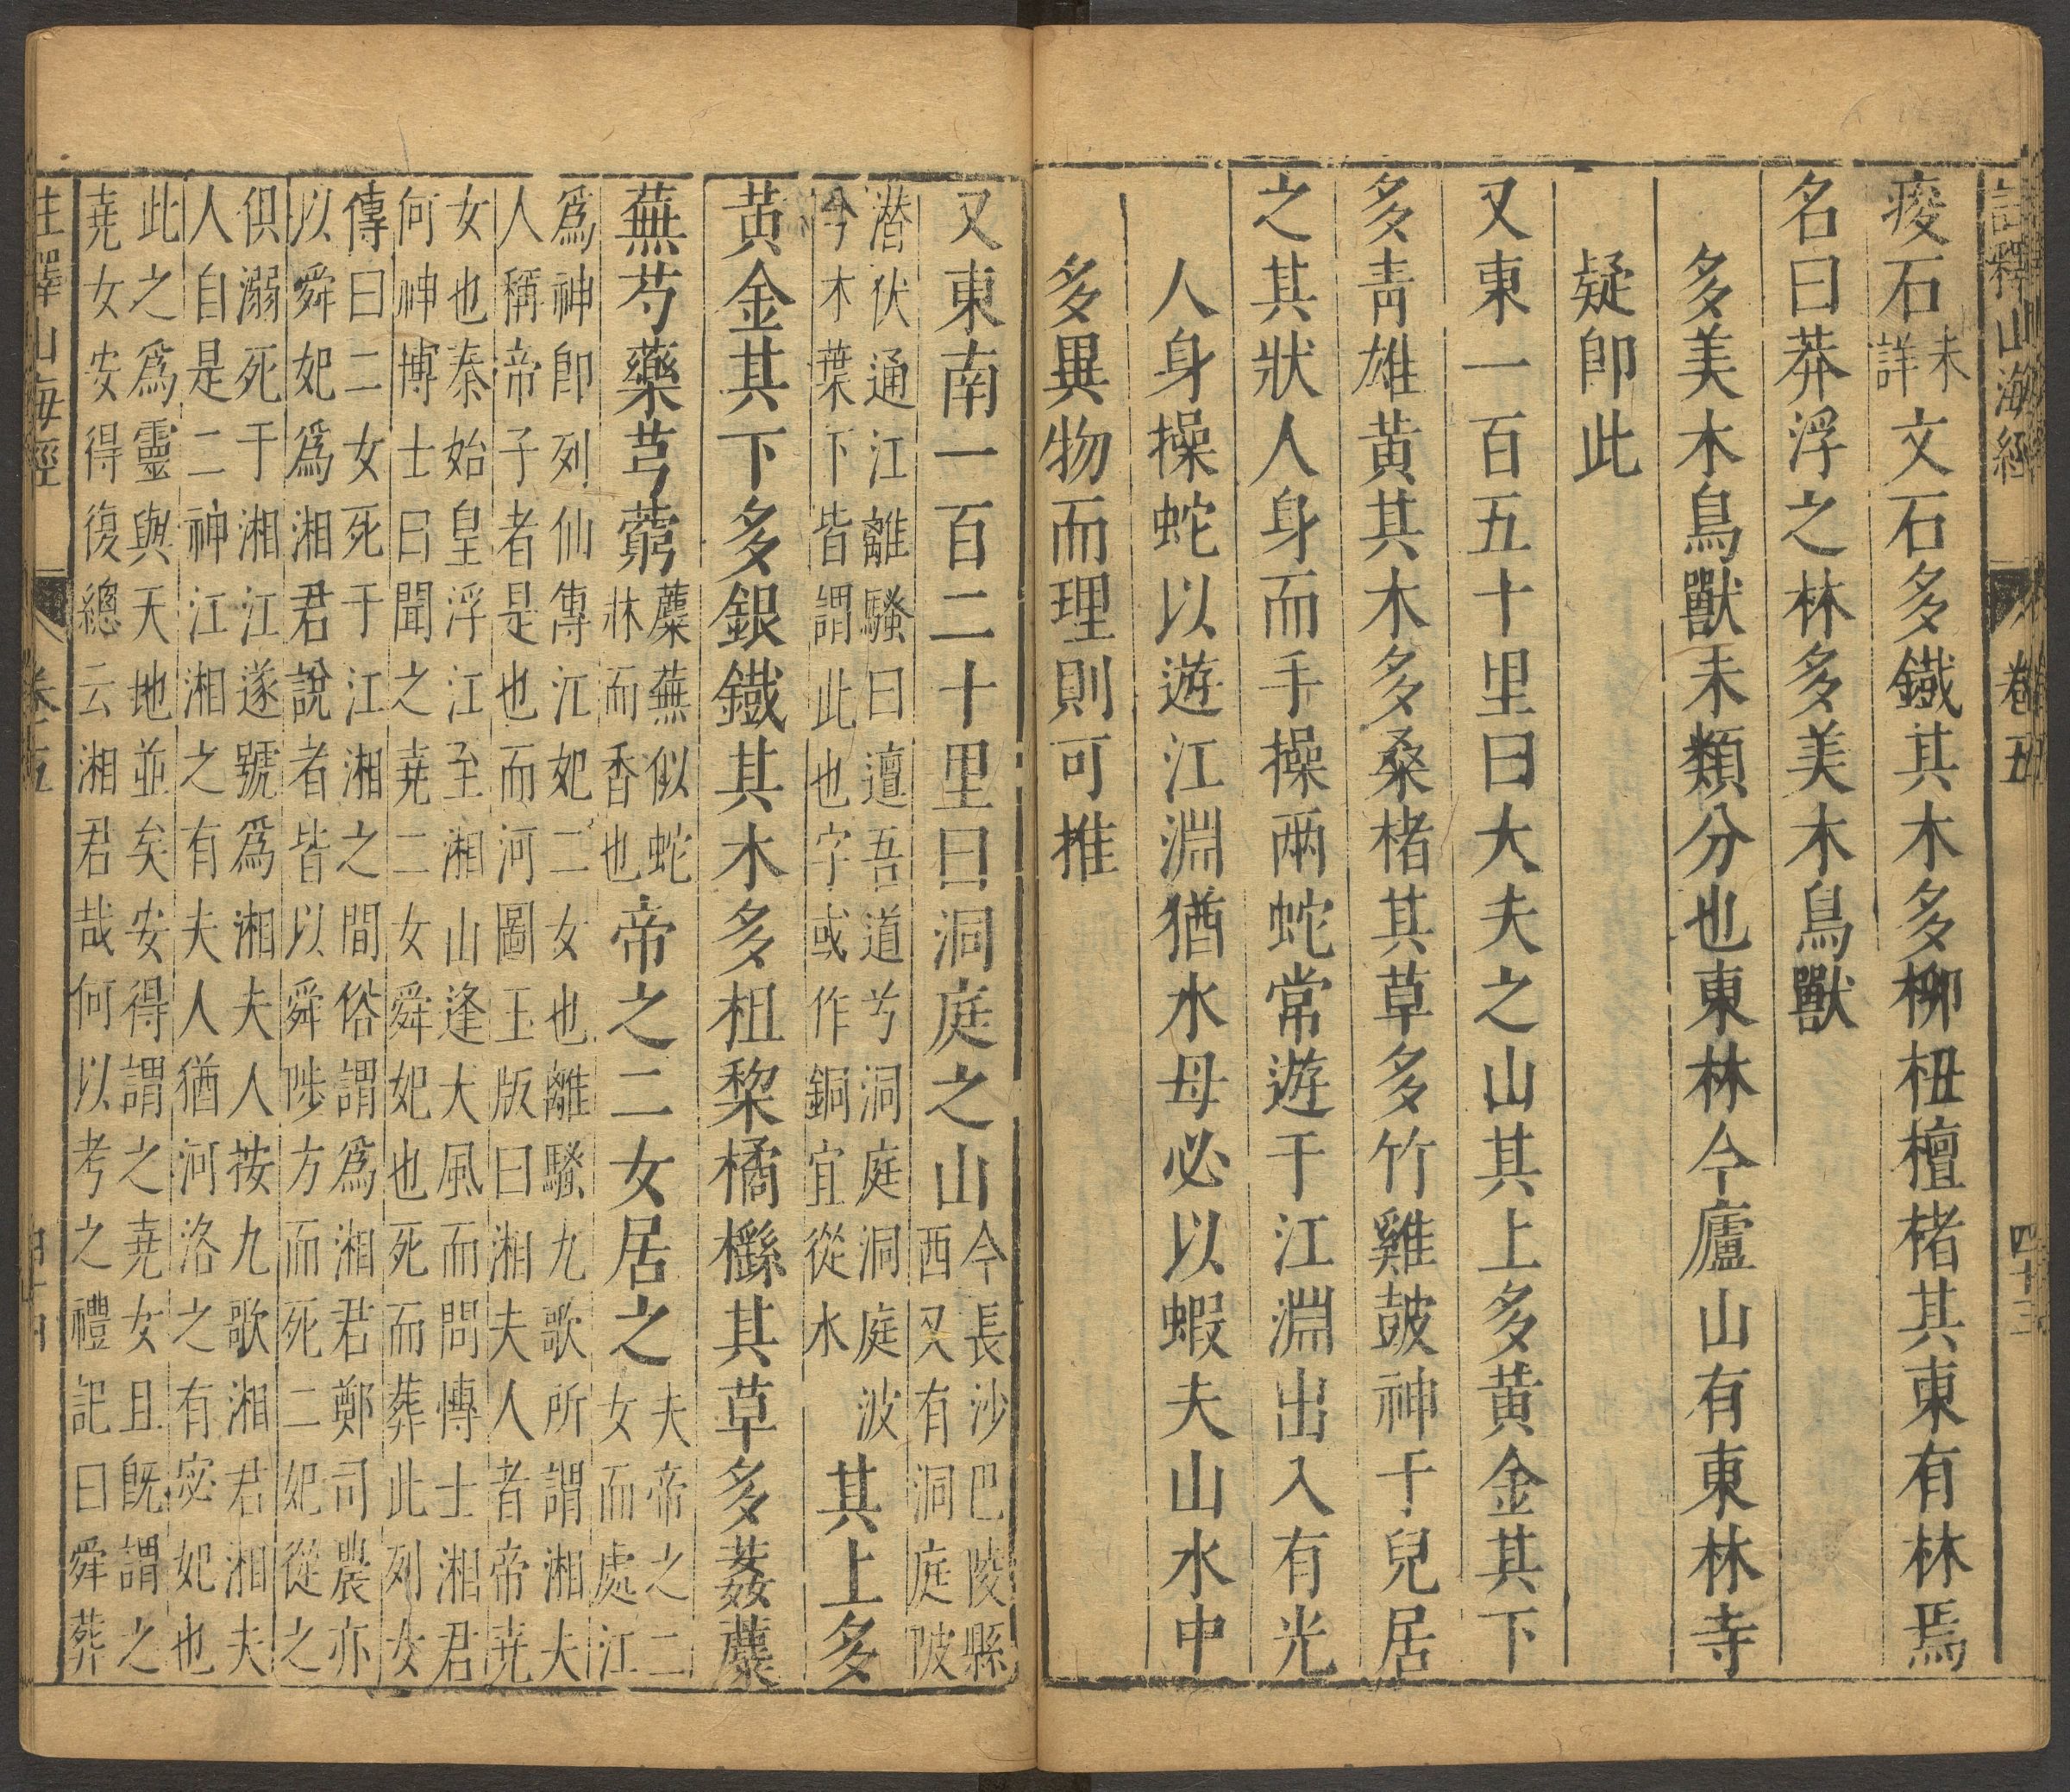 註釋山海經 卷五 四十三
痠石未詳文石多鐵其木多柳杻檀楮其東有林焉
名曰莽浮之林多美木鳥獸
多美木鳥獸未類分也東林今廬山有東林寺
疑即此
又東一百五十里曰大夫之山其上多黄金其下
多青雄黄其木多桑楮其草多竹雞鼓神于兒居
之其狀人身而手操兩蛇常遊于江淵出入有光
人身操蛇以遊江淵猶水母必以蝦夫山水中
多異物而理則可推
又東南一百二十里曰洞庭之山今長沙巴陵縣西又有洞庭陂
潛伏通江離騷曰邅吾道兮洞庭洞庭波今木葉下皆謂此也字或作銅宜從水其上多
黄金其下多銀鐵其木多柤棃橘櫾其草多葌蘪
蕪芍藥芎藭蘪蕪似蛇牀而香也帝之二女居之夫帝之二女而處江
爲神即列仙傳江妃二女也離騷九歌所謂湘夫
人稱帝子者是也而河圖玉版曰湘夫人者帝堯
女也秦始皇浮江至湘山逢大風而問博士湘君
何神博士曰聞之堯二女舜妃也死而葬此列女
傳曰二女死于江湘之間俗謂爲湘君鄭司農亦
以舜妃爲湘君說者皆以舜陟方而死二妃從之
俱溺死于湘江遂號爲湘夫人按九歌湘君湘夫
人自是二神江湘之有夫人猶河洛之有宓妃也
此之爲靈與天地並矣安得謂之堯女且既謂之
堯女安得復總云湘君哉何以考之禮記曰舜葬
海經 卷五